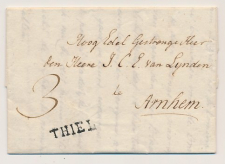 Hoog Edel Gestrenge Heer
den Heere J. C. E van Lynden
te
3
Arnhem.
THIEL